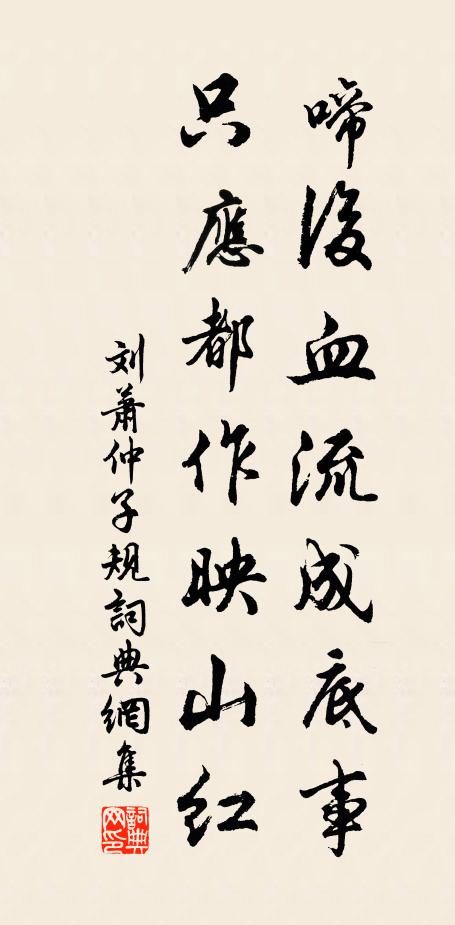 啼後血流成底事
只應都作映山红
刘蕭仲子規詞典網集
詞典网印